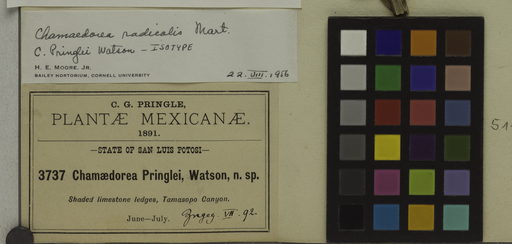 Chamaedorea radicalis Mart.
C. Pringlei Watson – ISOTYPE
H. E. MOORE, JR.
BAILEY HORTORIUM, CORNELL UNIVERSITY
22.VIII.1956
C. G. PRINGLE,
PLANTÆ MEXICANÆ.
1891.
—STATE OF SAN LUIS POTOSI—
3737 Chamædorea Pringlei, Watson, n. sp.
Shaded limestone ledges, Tamasopo Canyon.
June—July. VII. 92.